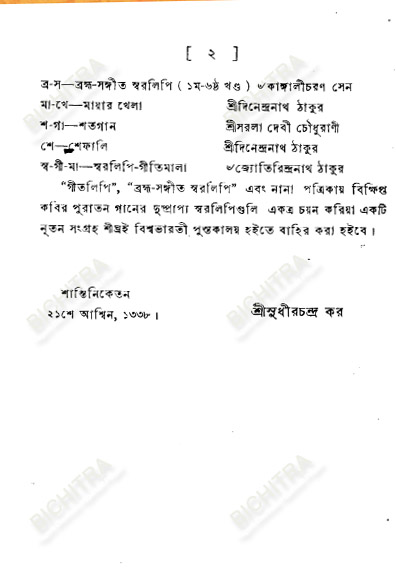 [ ২ ]
ব্র-স—ব্রহ্ম-সঙ্গীত স্বরলিপি ( ১ম-৬ষ্ঠ খণ্ড ) ৺কাঙ্গালীচরণ সেন
মা-খে—মায়ার খেলা শ্রীদিনেন্দ্রনাথ ঠাকুর
শ-গা—শতগান শ্রীসরলা দেবী চৌধুরাণী
শে—শেফালি শ্রীদিনেন্দ্রনাথ ঠাকুর
স্ব-গী-মা—স্বরলিপি-গীতিমালা ৺জ্যোতিরিন্দ্রনাথ ঠাকুর
“গীতলিপি”, “ব্রহ্ম-সঙ্গীত স্বরলিপি” এবং নানা পত্রিকায় বিক্ষিপ্ত
কবির পুরাতন গানের দুষ্প্রাপ্য স্বরলিপিগুলি একত্র চয়ন করিয়া একটি
নূতন সংগ্রহ শীঘ্রই বিশ্বভারতী পুস্তকালয় হইতে বাহির করা হইবে।
শান্তিনিকেতন
২১শে আশ্বিন, ১৩৩৮।
শ্রীসুধীরচন্দ্র কর
BICHITRA
BICHITRA
BICHITRA
BICHITRA
BICHITRA
BICHITRA